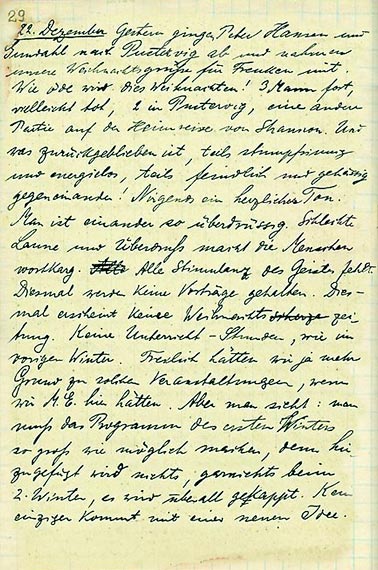 29
22. Dezember Gestern gingen Peter Hansen und
Gundahl nach Pustervig ab und nahmen
unsere Weihnachtsgrüße für Freuchen mit.
Wie öde wird dies Weihnachten! 3 Mann fort,
vielleicht tot, 2 in Pustervig, eine andere
Partie auf der Heimreise von Shannon. Und
was zurückgeblieben ist, teils stumpfsinnig
und energielos, teils feindlich und gehässig
gegeneinander! Nirgends ein herzlicher Ton.
Man ist einander so überdrüssig. Schlechte
Laune und Überdruss macht die Menschen
wortkarg. Alle Stimulanz des Geistes fehlt.
Diesmal werden keine Vorträge gehalten. Dies-
mal erscheint keine Weihnachts zei-
tung. Keine Unterricht-Stunden, wie im
vorigen Winter. Freilich hätten wir ja mehr
Grund zu solchen Veranstaltungen, wenn
wir M.E. hier hätten. Aber man sieht: man
muß das Programm des ersten Winters
so groß wie möglich machen, denn hin-
zugefügt wird nichts, garnichts beim
2. Winter, es wird überall gekappt. Kein
einziger kommt mit einer neuen Idee.